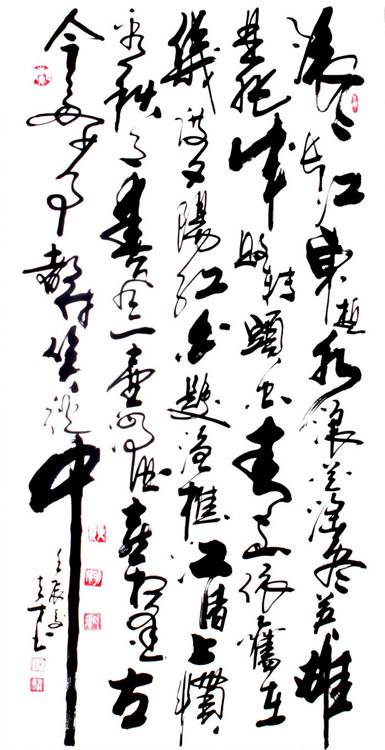 滚々长江東逝水浪花淘尽英雄
是非成敗转頭空青山依舊在
幾度夕陽红白髮渔樵江渚上惯
看秋月春风一壶浊酒喜相逢古
今多少事都付笑谈中
壬辰夏